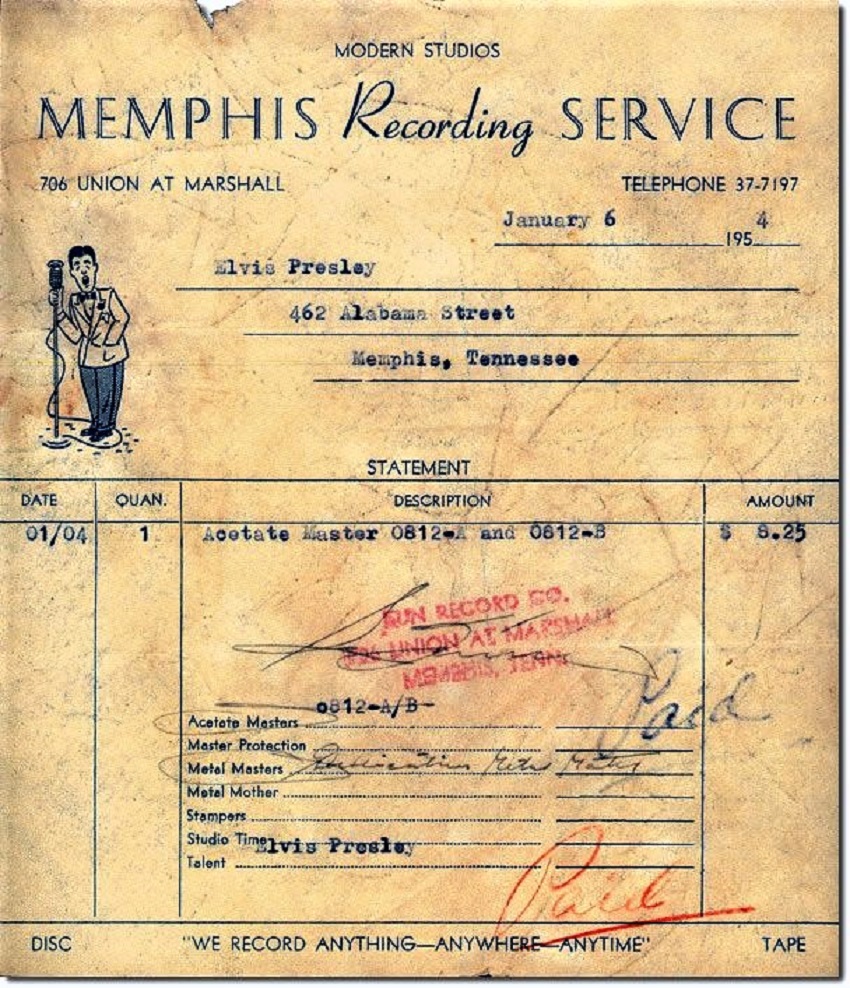 MODERN STUDIOS
MEMPHIS Recording SERVICE
706 UNION AT MARSHALL TELEPHONE 37-7197
January 6 1954
Elvis Presley
462 Alabama Street
Memphis, Tennessee
STATEMENT
DATE QUAN. DESCRIPTION AMOUNT
01/04 1 Acetate Master 0812-A and 0812-B $ 8.25
SUN RECORD CO.
706 UNION AT MARSHALL
MEMPHIS, TENN.
0812-A/B-
Acetate Masters
Paid
Master Protection
Metal Masters
Metal Mother
Stampers
Studio Time
Elvis Presley
Talent
Paid
DISC "WE RECORD ANYTHING—ANYWHERE—ANYTIME" TAPE